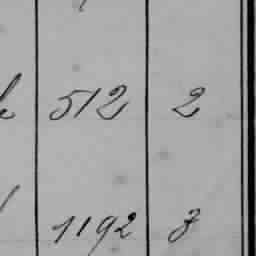 512 2
1192 3